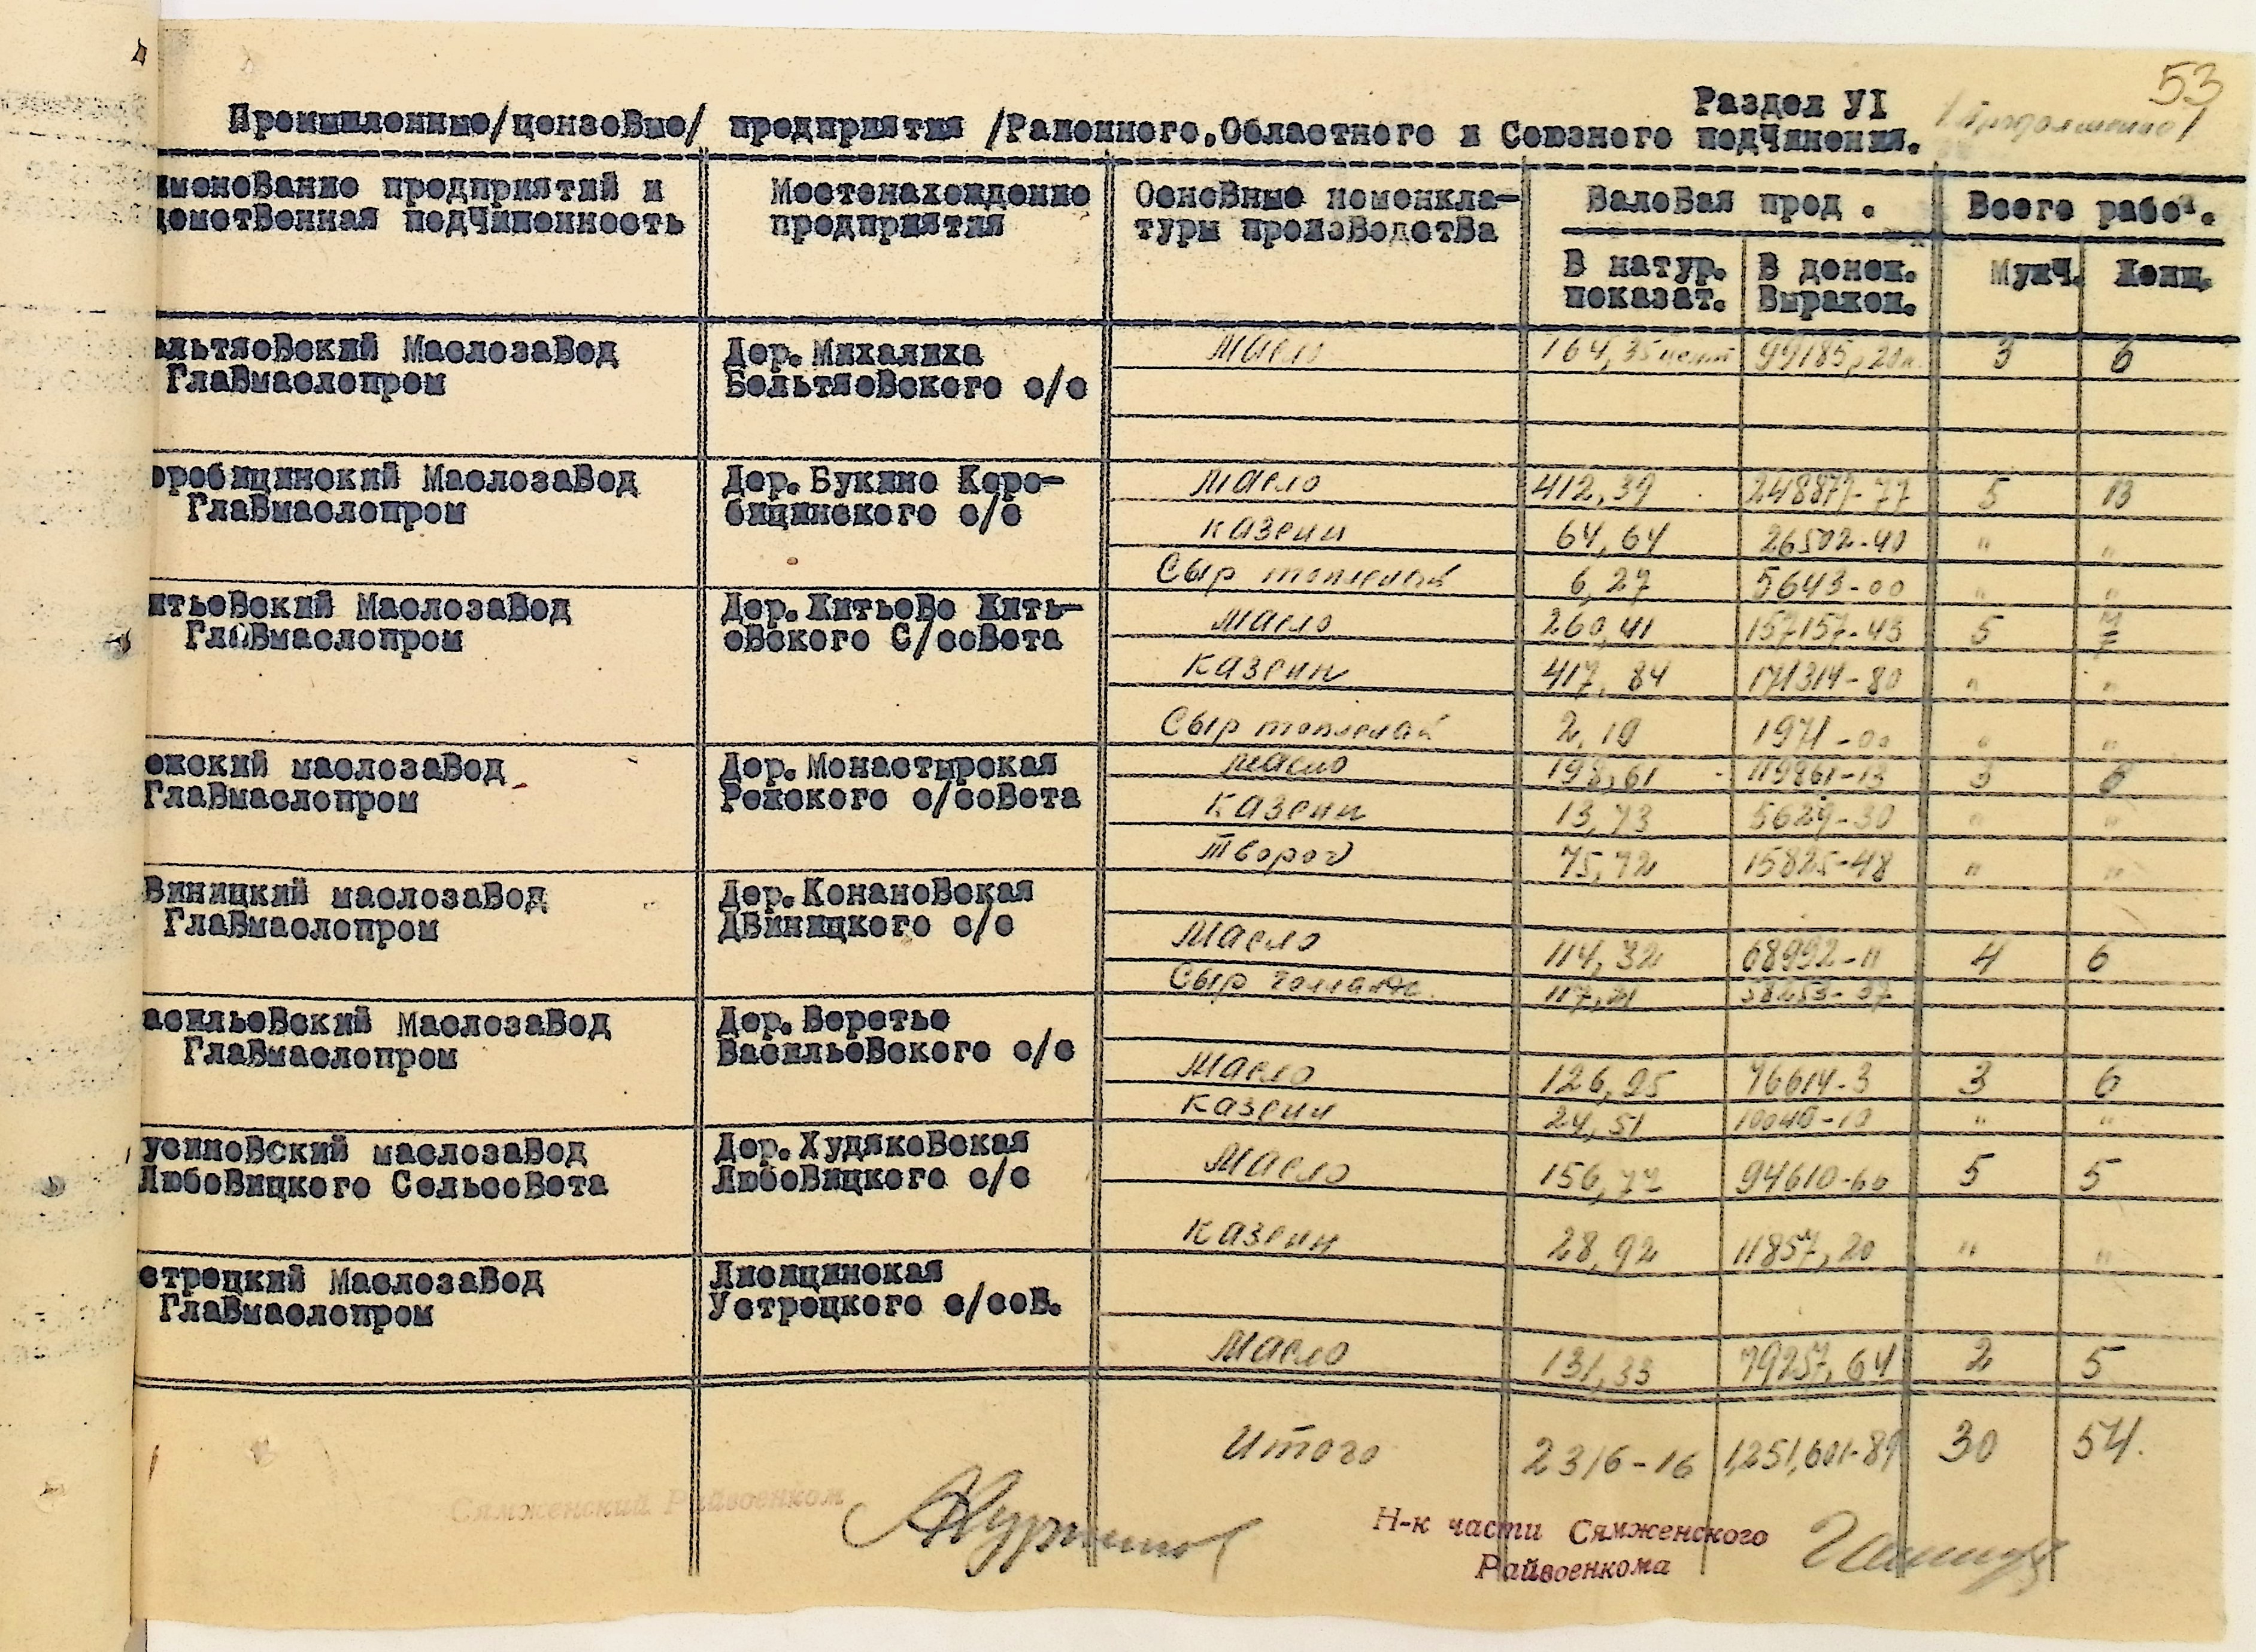 53
Раздел УI /продолжение/
Промышленные/цензовые/ предприятия /Районного,Областного и Союзного подчинения.
именование предприятий и
домственная подчиненность
Местонахождение
предприятия
Основные номенкла-
туры производства
Валовая прод .
Всего рабоч.
В натур.
показат.
В денеж.
Выражен.
Муж.
Женщ.
альтяевский Маслозавод
Главмаслопром
Дер. Михалиха
Бельтяевского с/с
Масло 164,35 цент 99185р20к. 3 6
оробицинский Маслозавод
Главмаслопром
Дер. Букино Коро-
бицинского с/с
Масло 412,39 248877-77 5 13
Казеин 64,64 26502-40 " "
Сыр топленый 6,27 5643-00 " "
итьевский Маслозавод
Главмаслопром
Дер. Житьево Жить-
евского С/совета
Масло 260,41 157157-43 5 7
Казеин 417,84 171314-80 " "
Сыр топленый 2,19 1971-00 " "
ежский маслозавод
Главмаслопром
Дер. Монастырская
Режского с/совета
Масло 198,61 119861-13 3 6
Казеин 13,73 5629-30 " "
Творог 75,72 15825-48 " "
виницкий маслозавод
Главмаслопром
Дер. Конановская
Двиницкого с/с
Масло 114,32 68992-11 4 6
Сыр голланд. 117,21 58253-37
асильевский Маслозавод
Главмаслопром
Дер. Веретье
Васильевского с/с
Масло 126,95 76614-3 3 6
Казеин 24,51 10040-10 " "
усиновский маслозавод
Любовицкого Сельсовета
Дер. Худяковская
Любовицкого с/с
Масло 156,77 94610-60 5 5
Казеин 28,92 11857,20 " "
стрецкий Маслозавод
Главмаслопром
Лисицинская
Устрецкого с/сов.
Масло 131,33 79257,64 2 5
Итого 2316-16 1,251,601-89 30 54.
Сямженский Райвоенком
Н-к части Сямженского
Райвоенкома